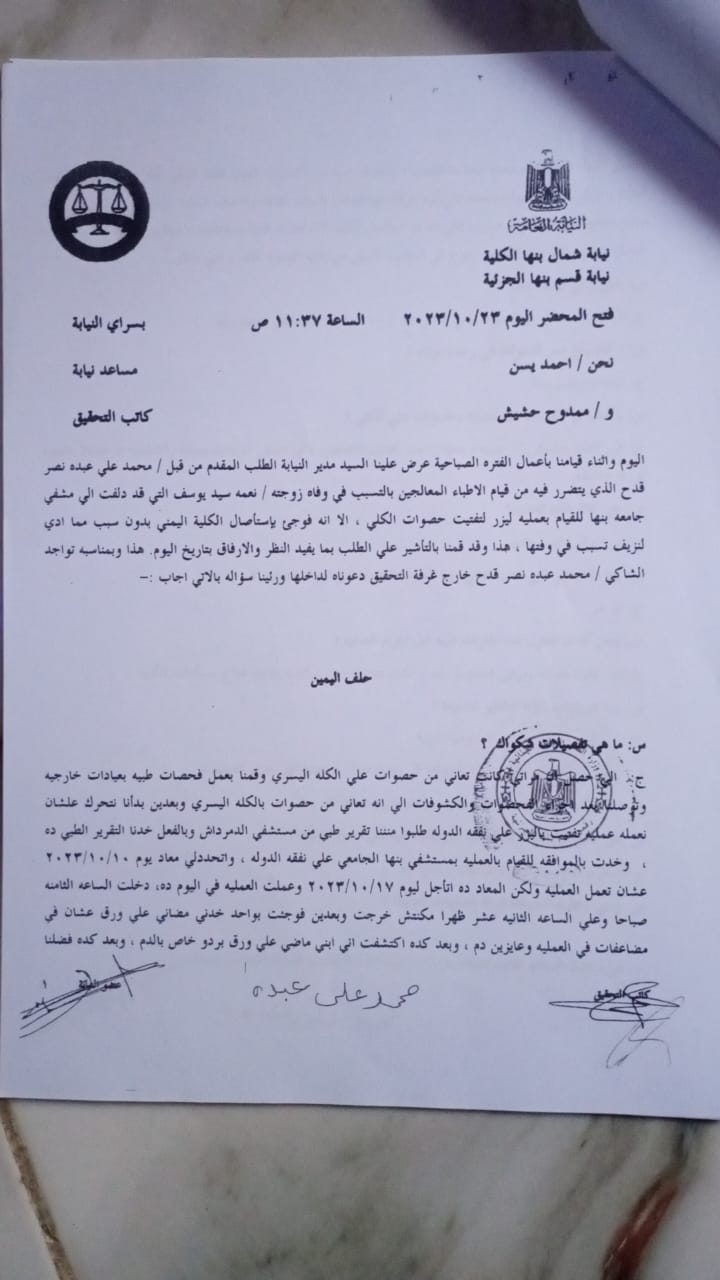 النيابة العامة
نيابة شمال بنها الكلية
نيابة قسم بنها الجزئية
فتح المحضر اليوم ٢٠٢٣/١٠/٢٣ الساعة ١١:٣٧ ص بسراي النيابة
نحن / احمد يسن مساعد نيابة
و / ممدوح حشيش كاتب التحقيق
اليوم واثناء قيامنا بأعمال الفتره الصباحية عرض علينا السيد مدير النيابة الطلب المقدم من قبل / محمد علي عبده نصر
قدح الذي يتضرر فيه من قيام الاطباء المعالجين بالتسبب في وفاه زوجته / نعمه سيد يوسف التي قد دلفت الي مشفي
جامعه بنها للقيام بعمليه ليزر لتفتيت حصوات الكلي ، الا انه فوجئ بإستأصال الكلية اليمني بدون سبب مما ادي
لنزيف تسبب في وفتها ، هذا وقد قمنا بالتأشير علي الطلب بما يفيد النظر والارفاق بتاريخ اليوم. هذا وبمناسبه تواجد
الشاكي / محمد عبده نصر قدح خارج غرفة التحقيق دعوناه لداخلها ورئينا سؤاله بالاتي اجاب :–
حلف اليمين
س: ما هي تفصيلات شكواك ؟
ج: الي حصل ان مراتي كانت تعاني من حصوات علي الكله اليسري وقمنا بعمل فحصات طبيه بعيادات خارجيه
وتوصلنا بعد اجراء الفحصوات والكشوفات الي انه تعاني من حصوات بالكله اليسري وبعدين بدأنا نتحرك علشان
نعمله عمليه تفتيت باليزر علي نفقه الدوله طلبوا مننا تقرير طبي من مستشفي الدمرداش وبالفعل خدنا التقرير الطبي ده
، وخدت بالموافقه للقيام بالعمليه بمستشفي بنها الجامعي علي نفقه الدوله ، واتحددلي معاد يوم ٢٠٢٣/١٠/١٠
عشان تعمل العمليه ولكن المعاد ده اتأجل ليوم ٢٠٢٣/١٠/١٧ وعملت العمليه في اليوم ده، دخلت الساعه الثامنه
صباحا وعلي الساعه الثانيه عشر ظهرا مكنتش خرجت وبعدين فوجئت بواحد خدني مضاني علي ورق عشان في
مضاعفات في العمليه وعايزين دم ، وبعد كده اكتشفت اني ابني ماضي علي ورق بردو خاص بالدم ، وبعد كده فضلنا
كاتب التحقيق محمد علي عبده عضو النيابة ١